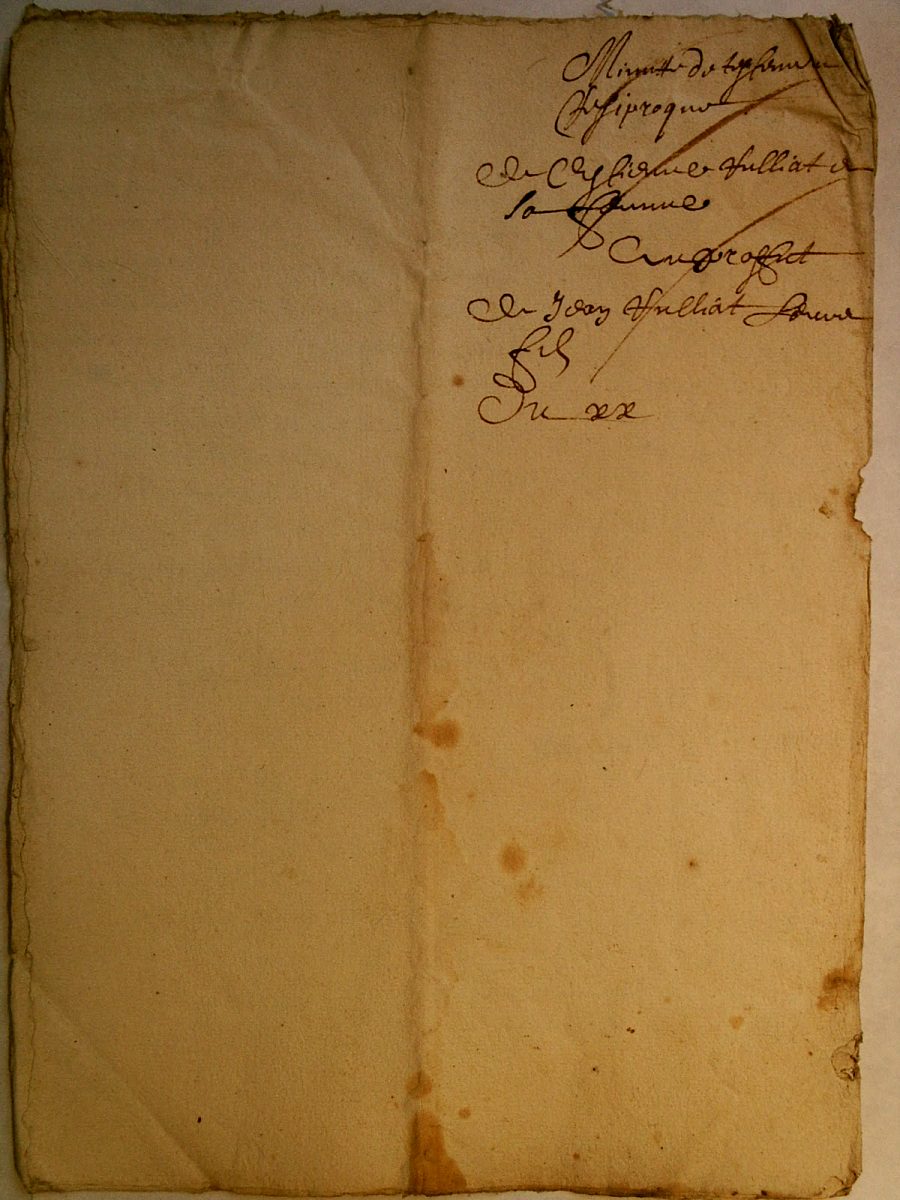 Minutte de testame
Resiproque
de Estienne Tulliat e
sa femme
Au proffict
de Jean Tulliat leur
fils
Du xx